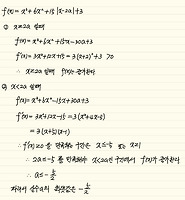 f(x) = x³+6x²+15|x-2a|+3
① x≥2a 일때
f(x) = x³+6x²+15x-30a+3
f'(x) = 3x²+12x+15 = 3(x+2)²+3 >0
∴ x≥2a 일때 f(x)는 증가한다
② x<2a 일때
f(x) = x³+6x²-15x+30a+3
f'(x) = 3x²+12x-15 = 3(x²+4x-5)
= 3(x+5)(x-1)
∴ f'(x)≥0 을 만족하는 구간은 x≤-5 또는 x≥1
∴ 2a≤-5 를 만족해야 x<2a인 구간에서 f(x)가 증가한다
∴ a≤-5/2
따라서 실수 a의 최댓값은 -5/2